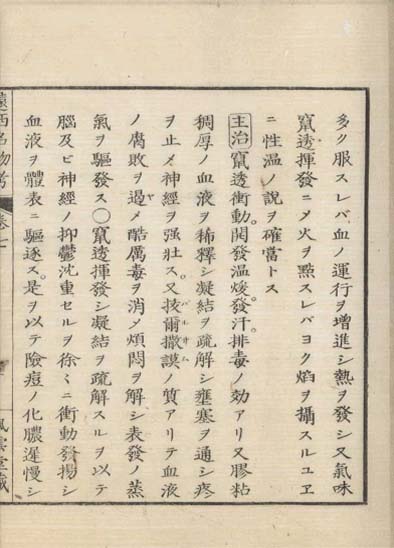 多ク服スレバ血ノ運行ヲ増進シ熱ヲ發シ又氣味
竄透揮發ニメ火ヲ點スレバヨク焰ヲ攝スルユヱ
ニ性温ノ說ヲ確當トス
主治 竄透衝動。開發温煖。發汗。排毒ノ効アリ又膠粘
稠厚ノ血液ヲ稀釋シ凝結ヲ疏解シ壅塞ヲ通シ疼
ヲ止メ神經ヲ强壯ス。又抜爾撒謨ノ質アリテ血液
バルサム
ノ腐敗ヲ遏メ酷厲毒ヲ消メ煩悶ヲ解シ表發ノ蒸
ヤ
氣ヲ驅發ス○竄透揮發シ凝結ヲ疏解スルヲ以テ
腦及ビ神經ノ抑鬱沈重セルヲ徐々ニ衝動發揚シ
血液ヲ體表ニ驅逐ス。是ヲ以テ險痘ノ化膿遲慢シ
遠西名物考 卷七
風雲堂藏